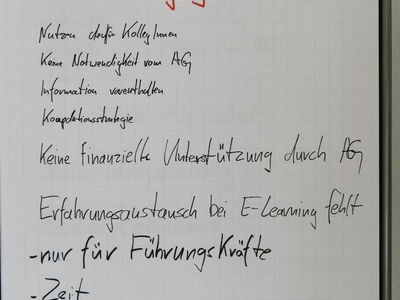 Nutzen dafür KollegInnen
Keine Notwendigkeit vom AG
Information vorenthalten
Kooptationsstrategie
Keine finanzielle Unterstützung durch AG
Erfahrungsaustausch bei E-Learning fehlt
-nur für Führungskräfte
-Zeit